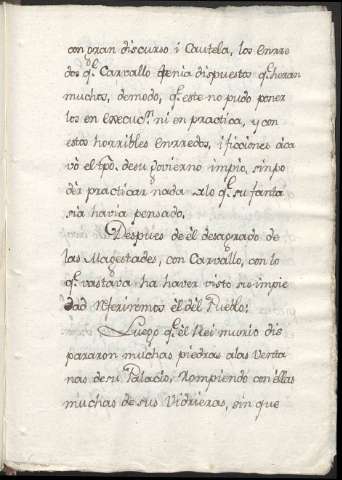 con gran discurso i Cautela, los enrre
dos q.e Carvallo tenia dispuestos q.e heran
muchos, demodo, q.e este no pudo poner
los en execuc.n ni en practica, y con
estos horribles enrredos, i ficciones aca
vò el tpõ. desu govierno impio, sinpo
dèr practicar nada alo q.e su fanta
sia havia pensado,
Despues de èl desagrado de
las Magestades, con Carvallo, con lo
q.e vastava ha haver visto su impie
dad Referiremos èl dèl Pueblo;
Luego q.e èl Rei murio dis
pararon muchas piedras alas Venta
nas de su Palacio, Rompiendo con èllas
muchas de sus Vidrieras, sin que